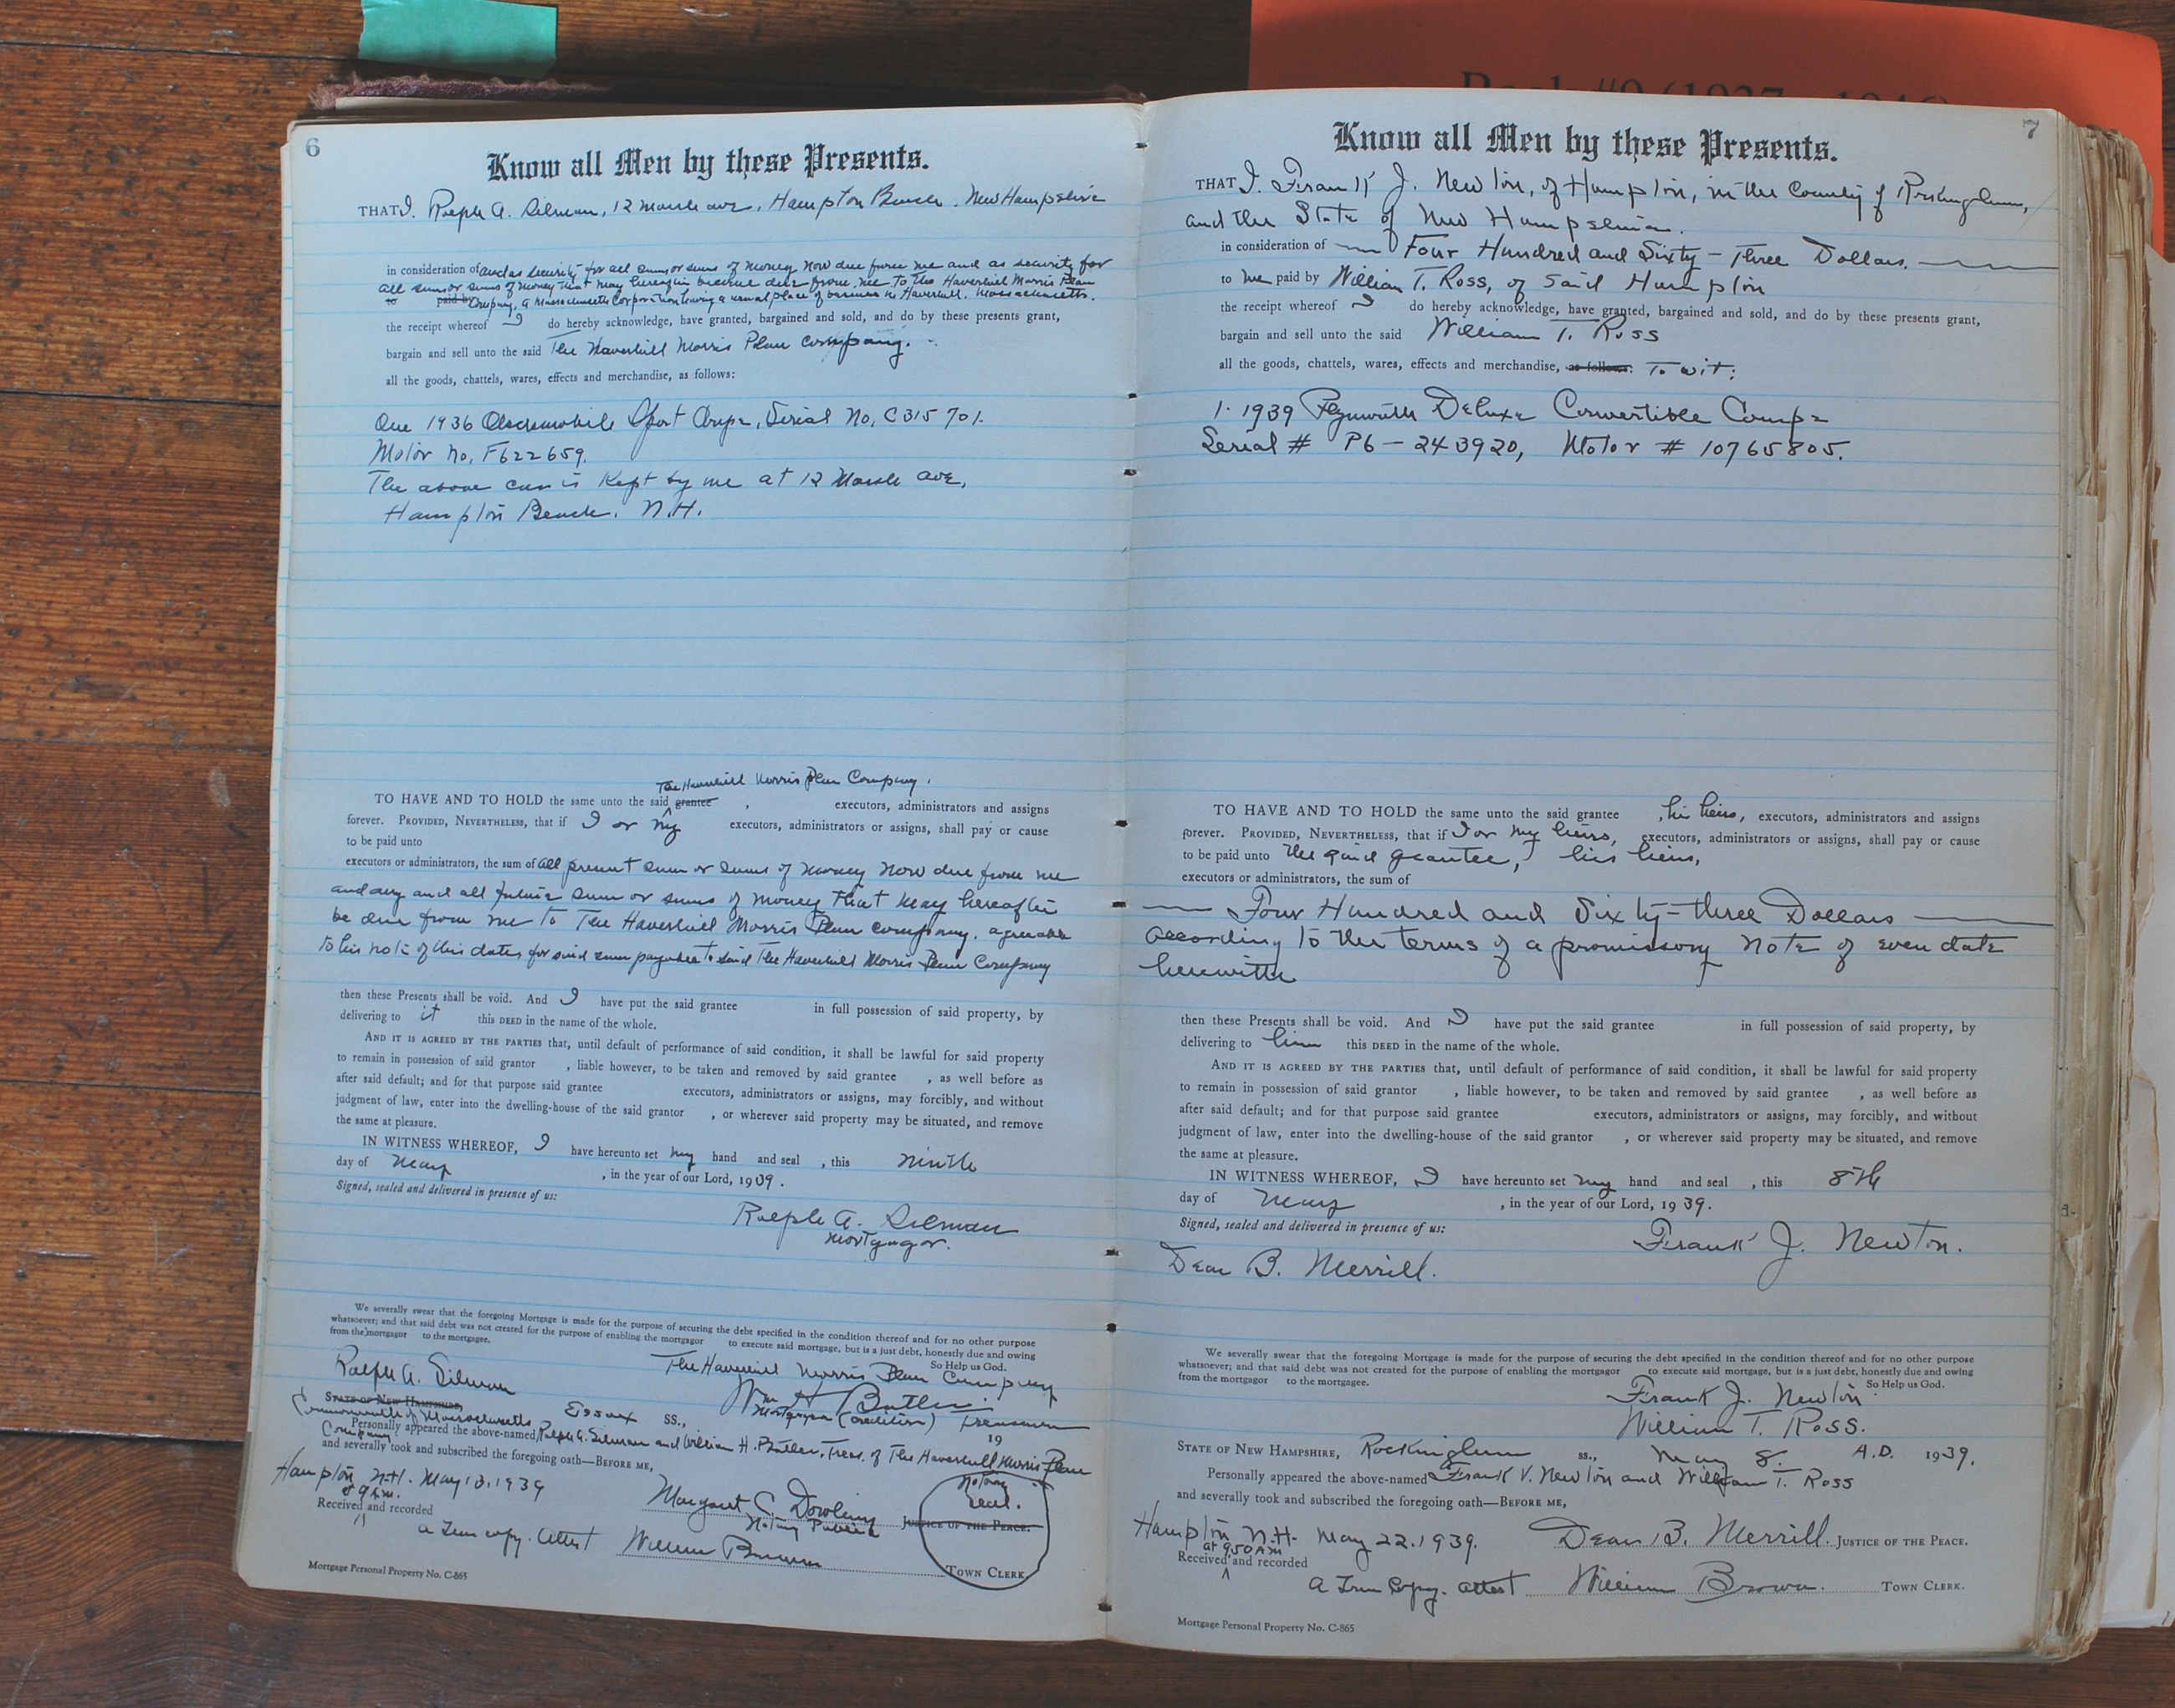 6
Know all Men by these Presents.
THAT I, Ralph A. Silman, 12 Marsh ave, Hampton Beach, New Hampshire
in consideration of and as security for all sum or sums of money now due from me and as security for
all sum or sums of money that may hereafter become due from me to the Haverhill Morris Plan
to paid by Company, a Massachusetts Corporation having a usual place of business in Haverhill, Massachusetts.
the receipt whereof I do hereby acknowledge, have granted, bargained and sold, and do by these presents grant,
bargain and sell unto the said The Haverhill Morris Plan Company.
all the goods, chattels, wares, effects and merchandise, as follows:
One 1936 Oldsmobile Sport Coupe, Serial No, C315701.
Motor No, F622659.
The above car is Kept by me at 12 Marsh ave,
Hampton Beach. N.H.
The Haverhill Morris Plan Company.
TO HAVE AND TO HOLD the same unto the said grantee , executors, administrators and assigns
forever. PROVIDED, NEVERTHELESS, that if I or my executors, administrators or assigns, shall pay or cause
to be paid unto
executors or administrators, the sum of all present sum or sums of money now due from me
and any and all future sum or sums of money that may hereafter
be due from me to The Haverhill Morris Plan Company, agreeable
to his note of this date, for said sum payable to said The Haverhill Morris Plan Company
then these Presents shall be void. And I have put the said grantee in full possession of said property, by
delivering to it this DEED in the name of the whole.
AND IT IS AGREED BY THE PARTIES that, until default of performance of said condition, it shall be lawful for said property
to remain in possession of said grantor , liable however, to be taken and removed by said grantee , as well before as
after said default; and for that purpose said grantee executors, administrators or assigns, may forcibly, and without
judgment of law, enter into the dwelling-house of the said grantor , or wherever said property may be situated, and remove
the same at pleasure.
IN WITNESS WHEREOF, I have hereunto set my hand and seal , this ninth
day of May , in the year of our Lord, 1939.
Signed, sealed and delivered in presence of us:
Ralph A. Silman
Mortgagor.
We severally swear that the foregoing Mortgage is made for the purpose of securing the debt specified in the condition thereof and for no other purpose
whatsoever; and that said debt was not created for the purpose of enabling the mortgagor to execute said mortgage, but is a just debt, honestly due and owing
from the mortgagor to the mortgagee. So Help us God.
Ralph A. Silman The Haverhill Morris Plan Company
Wm H Butler
STATE OF NEW HAMPSHIRE, Mortgagee (creditor) Treasurer
Commonwealth of Massachusetts Essex SS., 19
Personally appeared the above-named Ralph A. Silman and William H. Butler, Treas. of The Haverhill Morris Plan
Company
and severally took and subscribed the foregoing oath—BEFORE ME,
Hampton, N.H. May 13, 1939
8 9 A.M.
Notary
Seal.
Received and recorded Margaret C. Dowling JUSTICE OF THE PEACE.
Notary Public
a True copy. Attest William Brown TOWN CLERK.
Mortgage Personal Property No. C-865
7
Know all Men by these Presents.
THAT I, Frank J. Newton, of Hampton, in the County of Rockingham,
and the State of New Hampshire.
in consideration of Four Hundred and Sixty-Three Dollars.
to me paid by William T. Ross, of said Hampton
the receipt whereof I do hereby acknowledge, have granted, bargained and sold, and do by these presents grant,
bargain and sell unto the said William T. Ross
all the goods, chattels, wares, effects and merchandise, as follows: To wit:
1. 1939 Plymouth DeLuxe Convertible Coupe
Serial # P6-243920, Motor # 10765805.
TO HAVE AND TO HOLD the same unto the said grantee , his heirs, executors, administrators and assigns
forever. PROVIDED, NEVERTHELESS, that if I or my heirs, executors, administrators or assigns, shall pay or cause
to be paid unto the said grantee, his heirs,
executors or administrators, the sum of
Four Hundred and Sixty-three Dollars
according to the terms of a promissory note of even date
herewith
then these Presents shall be void. And I have put the said grantee in full possession of said property, by
delivering to him this DEED in the name of the whole.
AND IT IS AGREED BY THE PARTIES that, until default of performance of said condition, it shall be lawful for said property
to remain in possession of said grantor , liable however, to be taken and removed by said grantee , as well before as
after said default; and for that purpose said grantee executors, administrators or assigns, may forcibly, and without
judgment of law, enter into the dwelling-house of the said grantor , or wherever said property may be situated, and remove
the same at pleasure.
IN WITNESS WHEREOF, I have hereunto set my hand and seal , this 8th
day of May , in the year of our Lord, 1939.
Signed, sealed and delivered in presence of us:
Frank J. Newton.
Dean B. Merrill.
We severally swear that the foregoing Mortgage is made for the purpose of securing the debt specified in the condition thereof and for no other purpose
whatsoever; and that said debt was not created for the purpose of enabling the mortgagor to execute said mortgage, but is a just debt, honestly due and owing
from the mortgagor to the mortgagee. So Help us God.
Frank J. Newton
William T. Ross.
STATE OF NEW HAMPSHIRE, Rockingham ss., May 8. A.D. 1939.
Personally appeared the above-named Frank V. Newton and William T. Ross
and severally took and subscribed the foregoing oath—BEFORE ME,
Hampton N.H. May 22.1939. Dean B. Merrill. JUSTICE OF THE PEACE.
at 950 AM
Received and recorded
A True Copy. attest William Brown. TOWN CLERK.
Mortgage Personal Property No. C-865